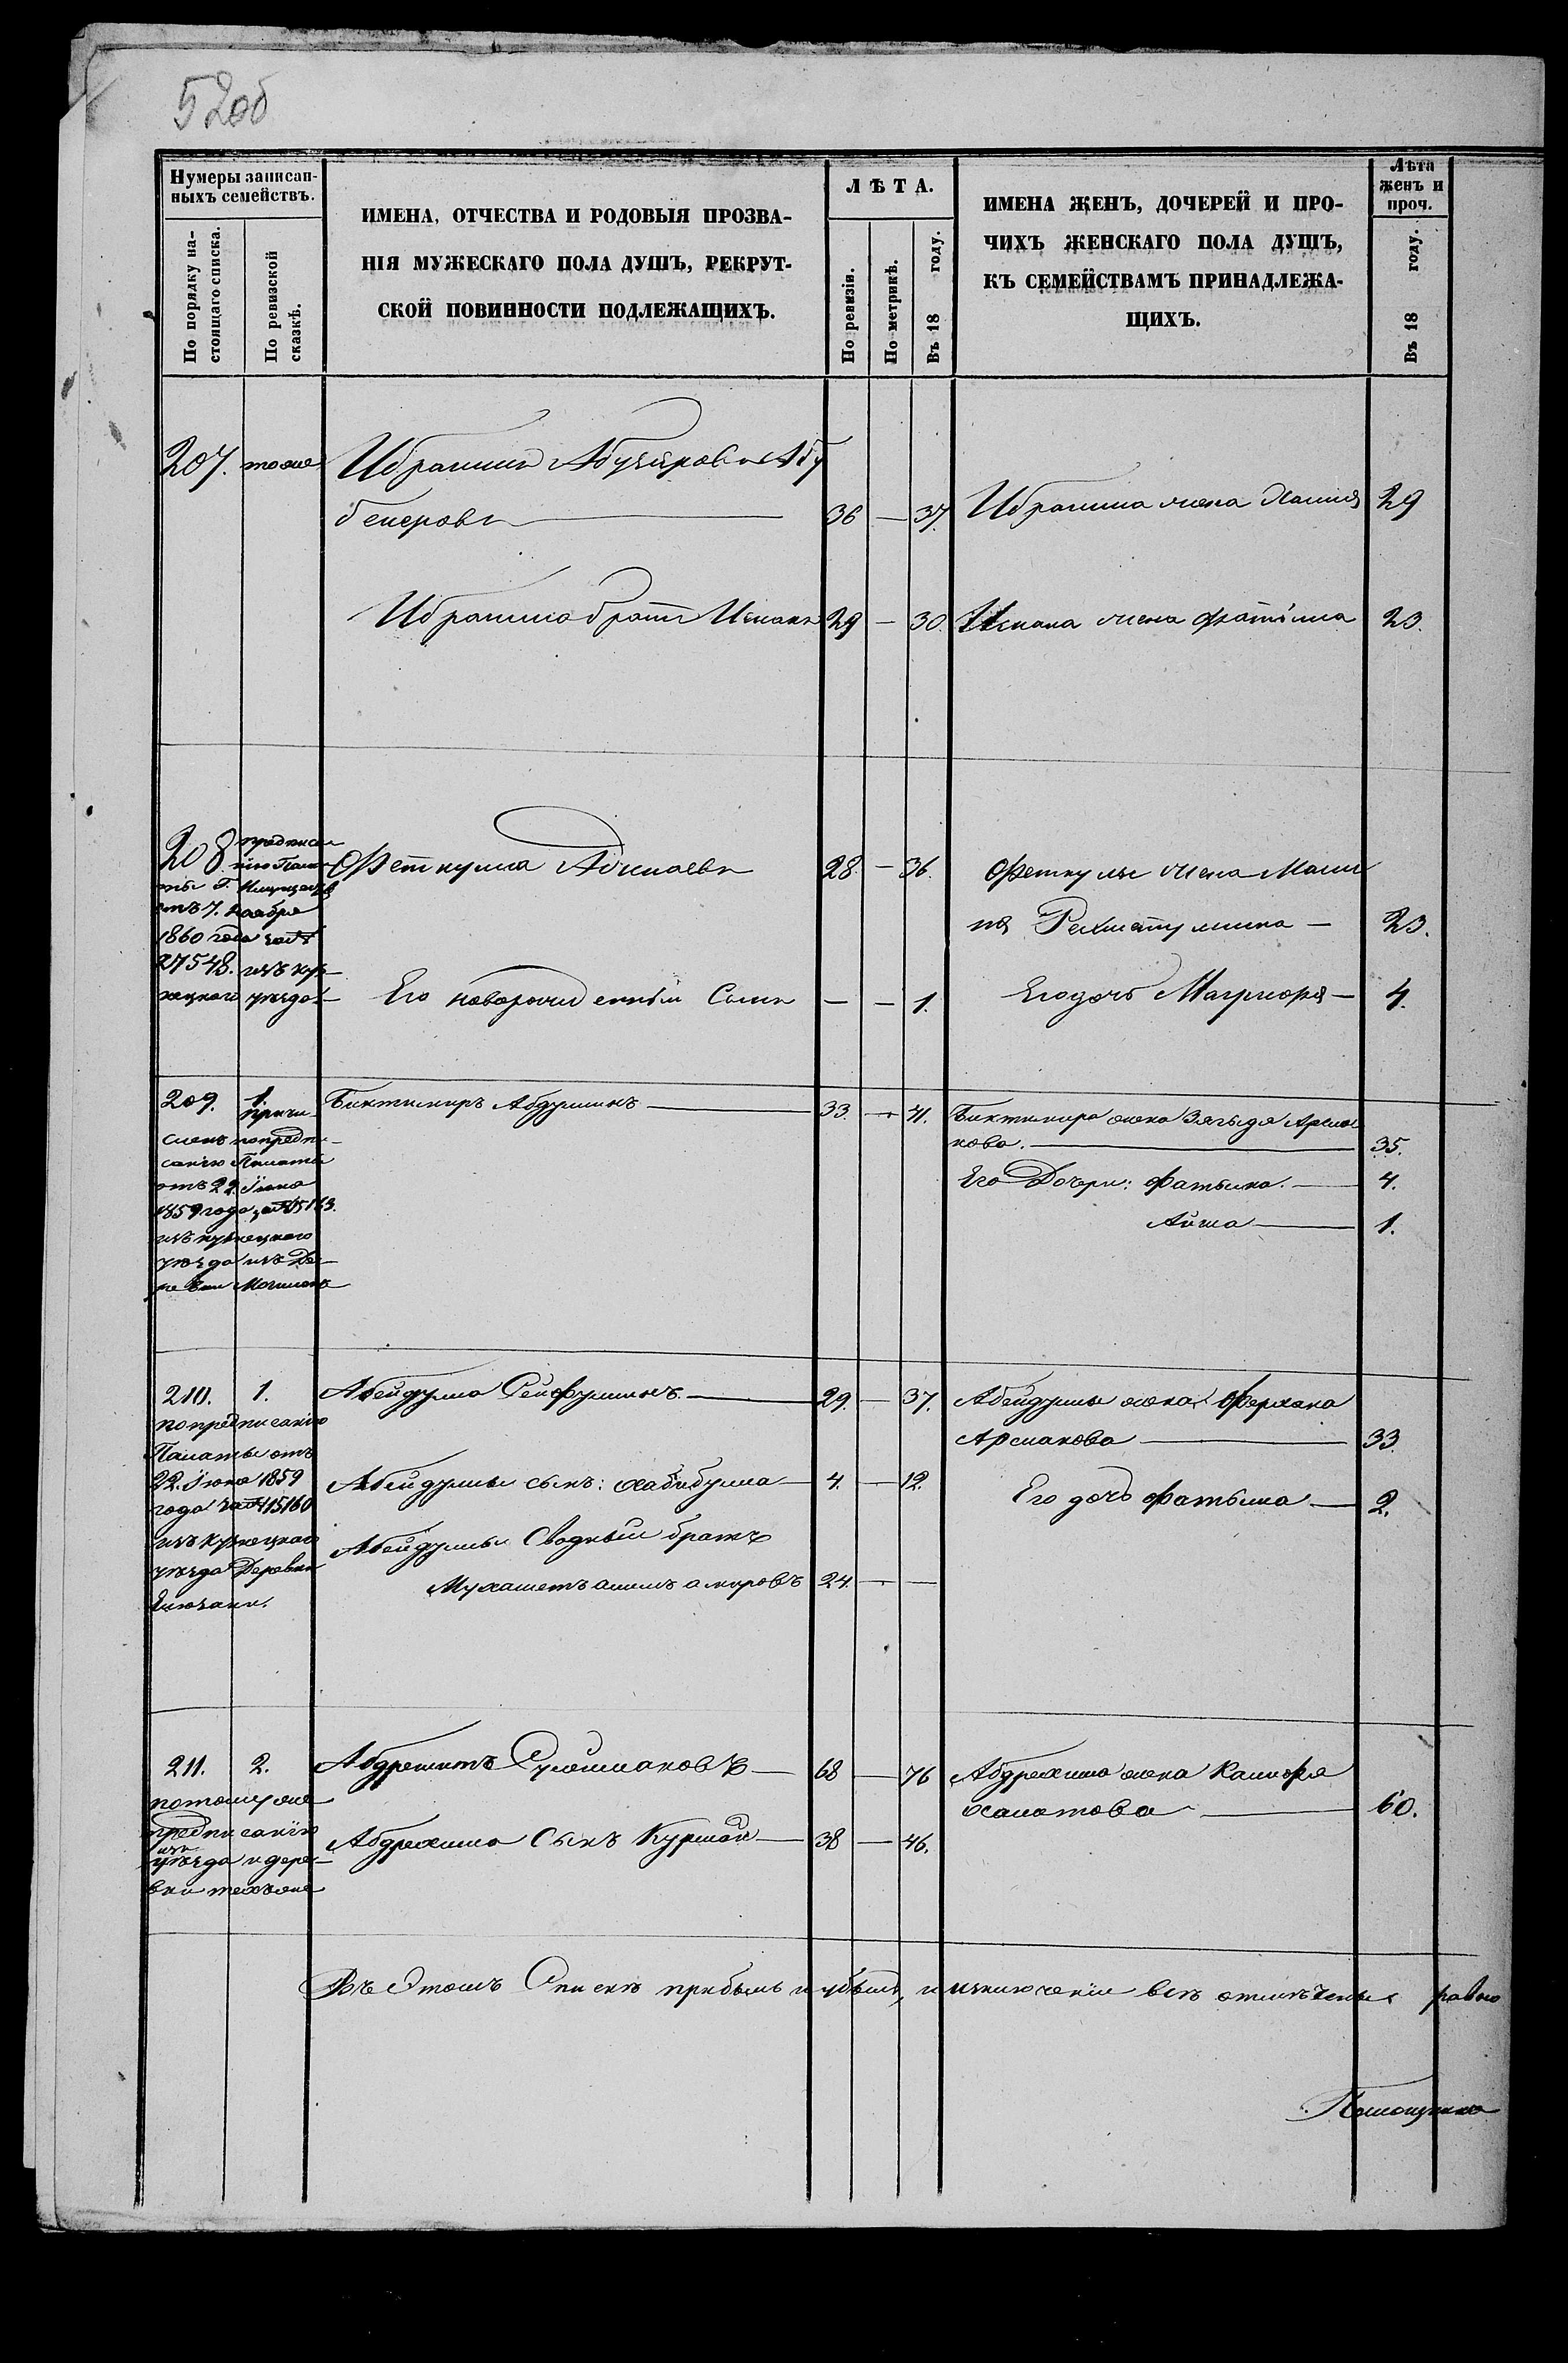 52об
Нумеры записан-
ныхъ семействъ.
По порядку на-
стоящаго списка.
По ревизской
сказкѣ.
ИМЕНА, ОТЧЕСТВА И РОДОВЫЯ ПРОЗВА-
НІЯ МУЖЕСКАГО ПОЛА ДУШЪ, РЕКРУТ-
СКОЙ ПОВИННОСТИ ПОДЛЕЖАЩИХЪ.
ЛѢТА.
По ревизіи.
По метрикѣ.
Въ 18 году.
ИМЕНА ЖЕНЪ, ДОЧЕРЕЙ И ПРО-
ЧИХЪ ЖЕНСКАГО ПОЛА ДУШЪ,
КЪ СЕМЕЙСТВАМЪ ПРИНАДЛЕЖА-
ЩИХЪ.
Лѣта
женъ и
проч.
Въ 18 году.
207. тоже Ибрагимъ Абу
бекеровъ — 36 — 37 Ибрагима жена 29
Ибрагима братъ Исхакъ 29 — 30. Исхака жена Фатіима 23.
208 предписа
нію Пала
ты Г.
отъ 7. ноября
1860 года за №
27548. изъ куз
нецкаго уѣзда
Феткулла 28. — 36. Феткуллы жена
Рахматуллина — 23.
Его новорожденный Сынъ — — 1. Его дочь 4.
209. 1.
Причи-
сленъ по предпи-
санію Палаты
отъ 22. Іюня
1859 года за № 15163.
изъ кузнецкаго
уѣзда изъ Де-
ревни
Биктимиръ Абдуллинъ — 33. — 41. Биктимира жена
кова. — 35.
Его Дочери: Фатьима. — 4.
Айша — 1.
210. 1.
по предписанію
Палаты отъ
22. Іюня 1859
года за № 15160
изъ кузнецкаго
уѣзда Деревни
Абейдулла Сейфуллинъ. — 29. — 37. Абейдуллы жена
Арсланова — 33
Абейдуллы сынъ: Хабибулла — 4. — 12. Его дочь Фатьима — 2.
Абейдуллы Сводный братъ
24. — —
211. 2.
по тому же
предписанію
изъ
уѣзда и дере-
вни тѣхъ же
Сулеймановъ — 68 — 76 жена
60.
Сынъ — 38 — 46.
Въ Этомъ Спискѣ прибыль и убыль, и изключеніи всѣ отмѣчены равно
Помощникъ